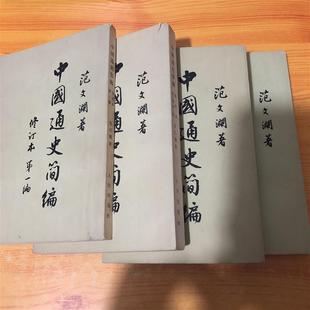 范文澜著
中國通史简编
修订本 第一编
范文澜著
中國通史简编
范文澜著
中國通史简编
范文澜著